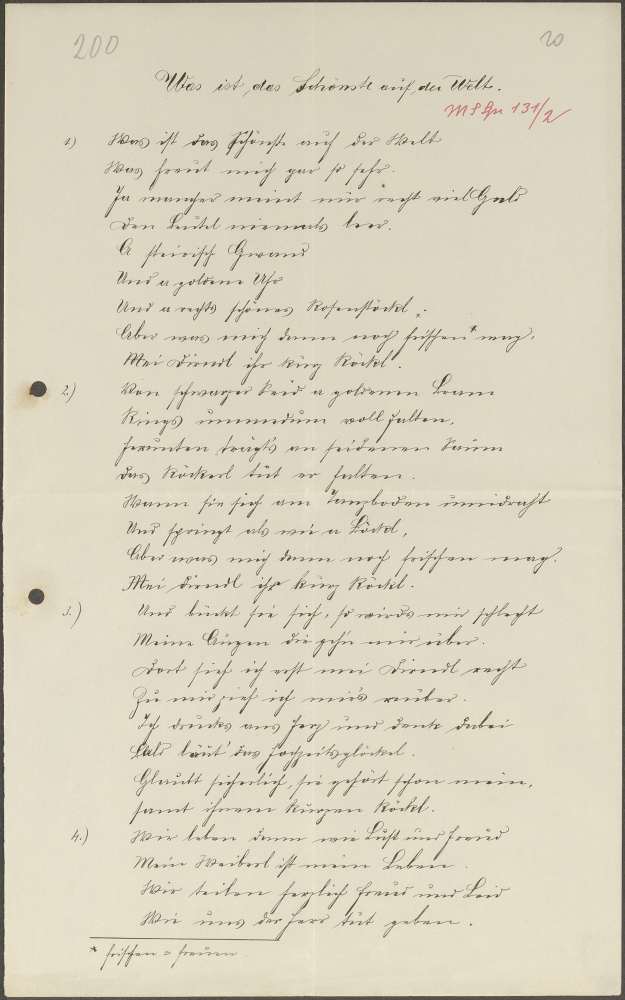 200
20
Was ist das Schönste auf der Welt.
MS Gr 131/2
1.) Was ist das Schönste auf der Welt
Was freut mich gar so sehr.
Ja mancher meint mir recht viel Geld
Den Beutel niemals leer.
A steirisch Gwand
Und a goldene Uhr
Und a rechts schönes Rosenstöckl,
Aber was mich dann noch frischen* mag,
Mei Dirndl ihr kurz Röckl.
2.) Von schwarzer Seid a goldenen Bram
Rings umundum voll Falten,
Herunten trägts an seidenen Saum
das Röckerl tut er halten.
Wann sie sich am Tanzboden umidraht
Und springt als wie a Böckl,
Aber was mich dann noch frischen mag.
Mei Dirndl ihr kurz Röckl.
3.) Und bückt sie sich, so wirds mir schlecht
Meine Augen die gehn mir über.
Dort sieh ich erst mei Dirndl recht
Zu mir zieh ich mirs rüber.
Ich drucks ans Herz und denk dabei
Bald läut' das Hochzeitsglöckel.
Glaubt sicherlich, sie gehört schon mein,
samt ihrem kurzen Röckl.
4.) Wir leben dann wie Lust und Freud
Mein Weiberl ist mein Leben.
Wir teilen herzlich Freud und Leid
Wie uns der Herr tut geben.
* frischen = freuen